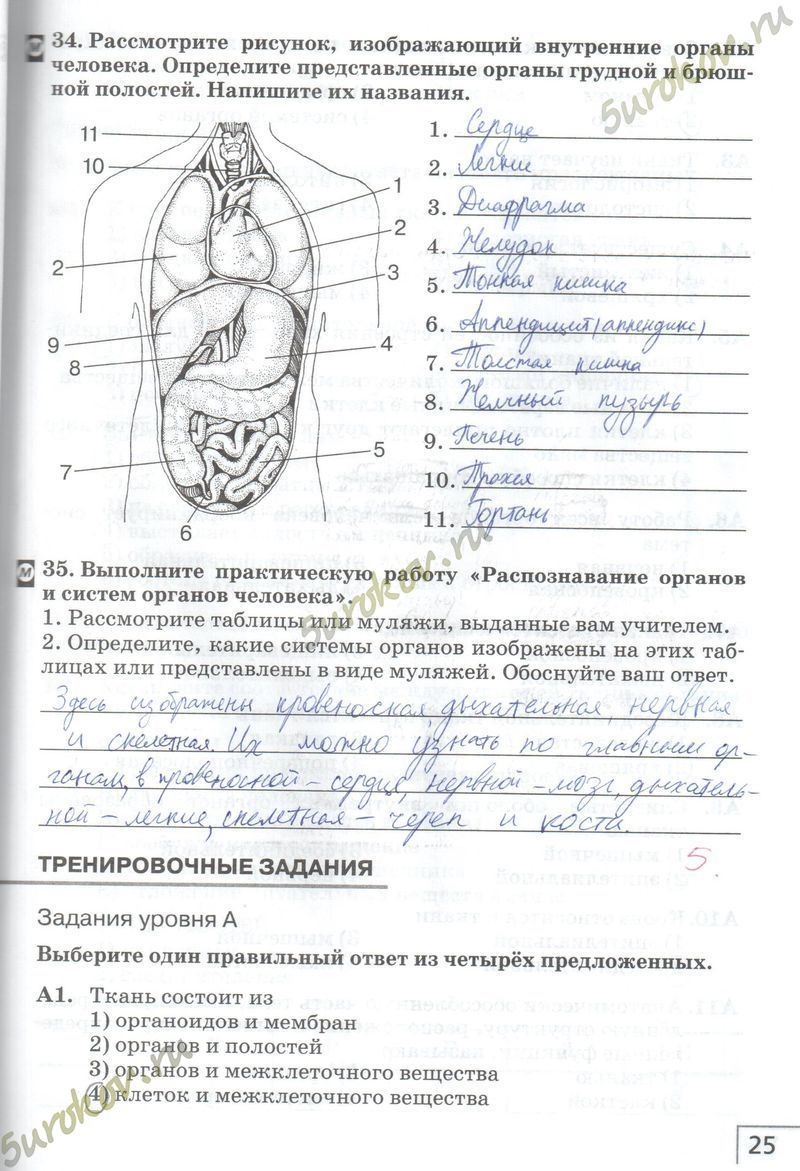 34. Рассмотрите рисунок, изображающий внутренние органы
человека. Определите представленные органы грудной и брюш-
ной полостей. Напишите их названия.
11
10
2
9
8
7
6
1
2
3
4
5
1. Сердце
2. Легкие
3. Диафрагма
4. Желудок
5. Тонкая кишка
6. Аппендицит (аппендикс)
7. Толстая кишка
8. Желчный пузырь
9. Печень
10. Трахея
11. Гортань
м 35. Выполните практическую работу «Распознавание органов
и систем органов человека».
1. Рассмотрите таблицы или муляжи, выданные вам учителем.
2. Определите, какие системы органов изображены на этих таб-
лицах или представлены в виде муляжей. Обоснуйте ваш ответ.
Здесь изображены кровеносная, дыхательная, нервная
и скелетная. Их можно узнать по главным ор-
ганам, в кровеносной – сердце, нервной – мозг, дыхатель-
ной – легкие, скелетная – череп и кости.
5
ТРЕНИРОВОЧНЫЕ ЗАДАНИЯ
Задания уровня А
Выберите один правильный ответ из четырёх предложенных.
А1. Ткань состоит из
1) органоидов и мембран
2) органов и полостей
3) органов и межклеточного вещества
4) клеток и межклеточного вещества
25
5urokov.ru
5urokov.ru
5urokov.ru